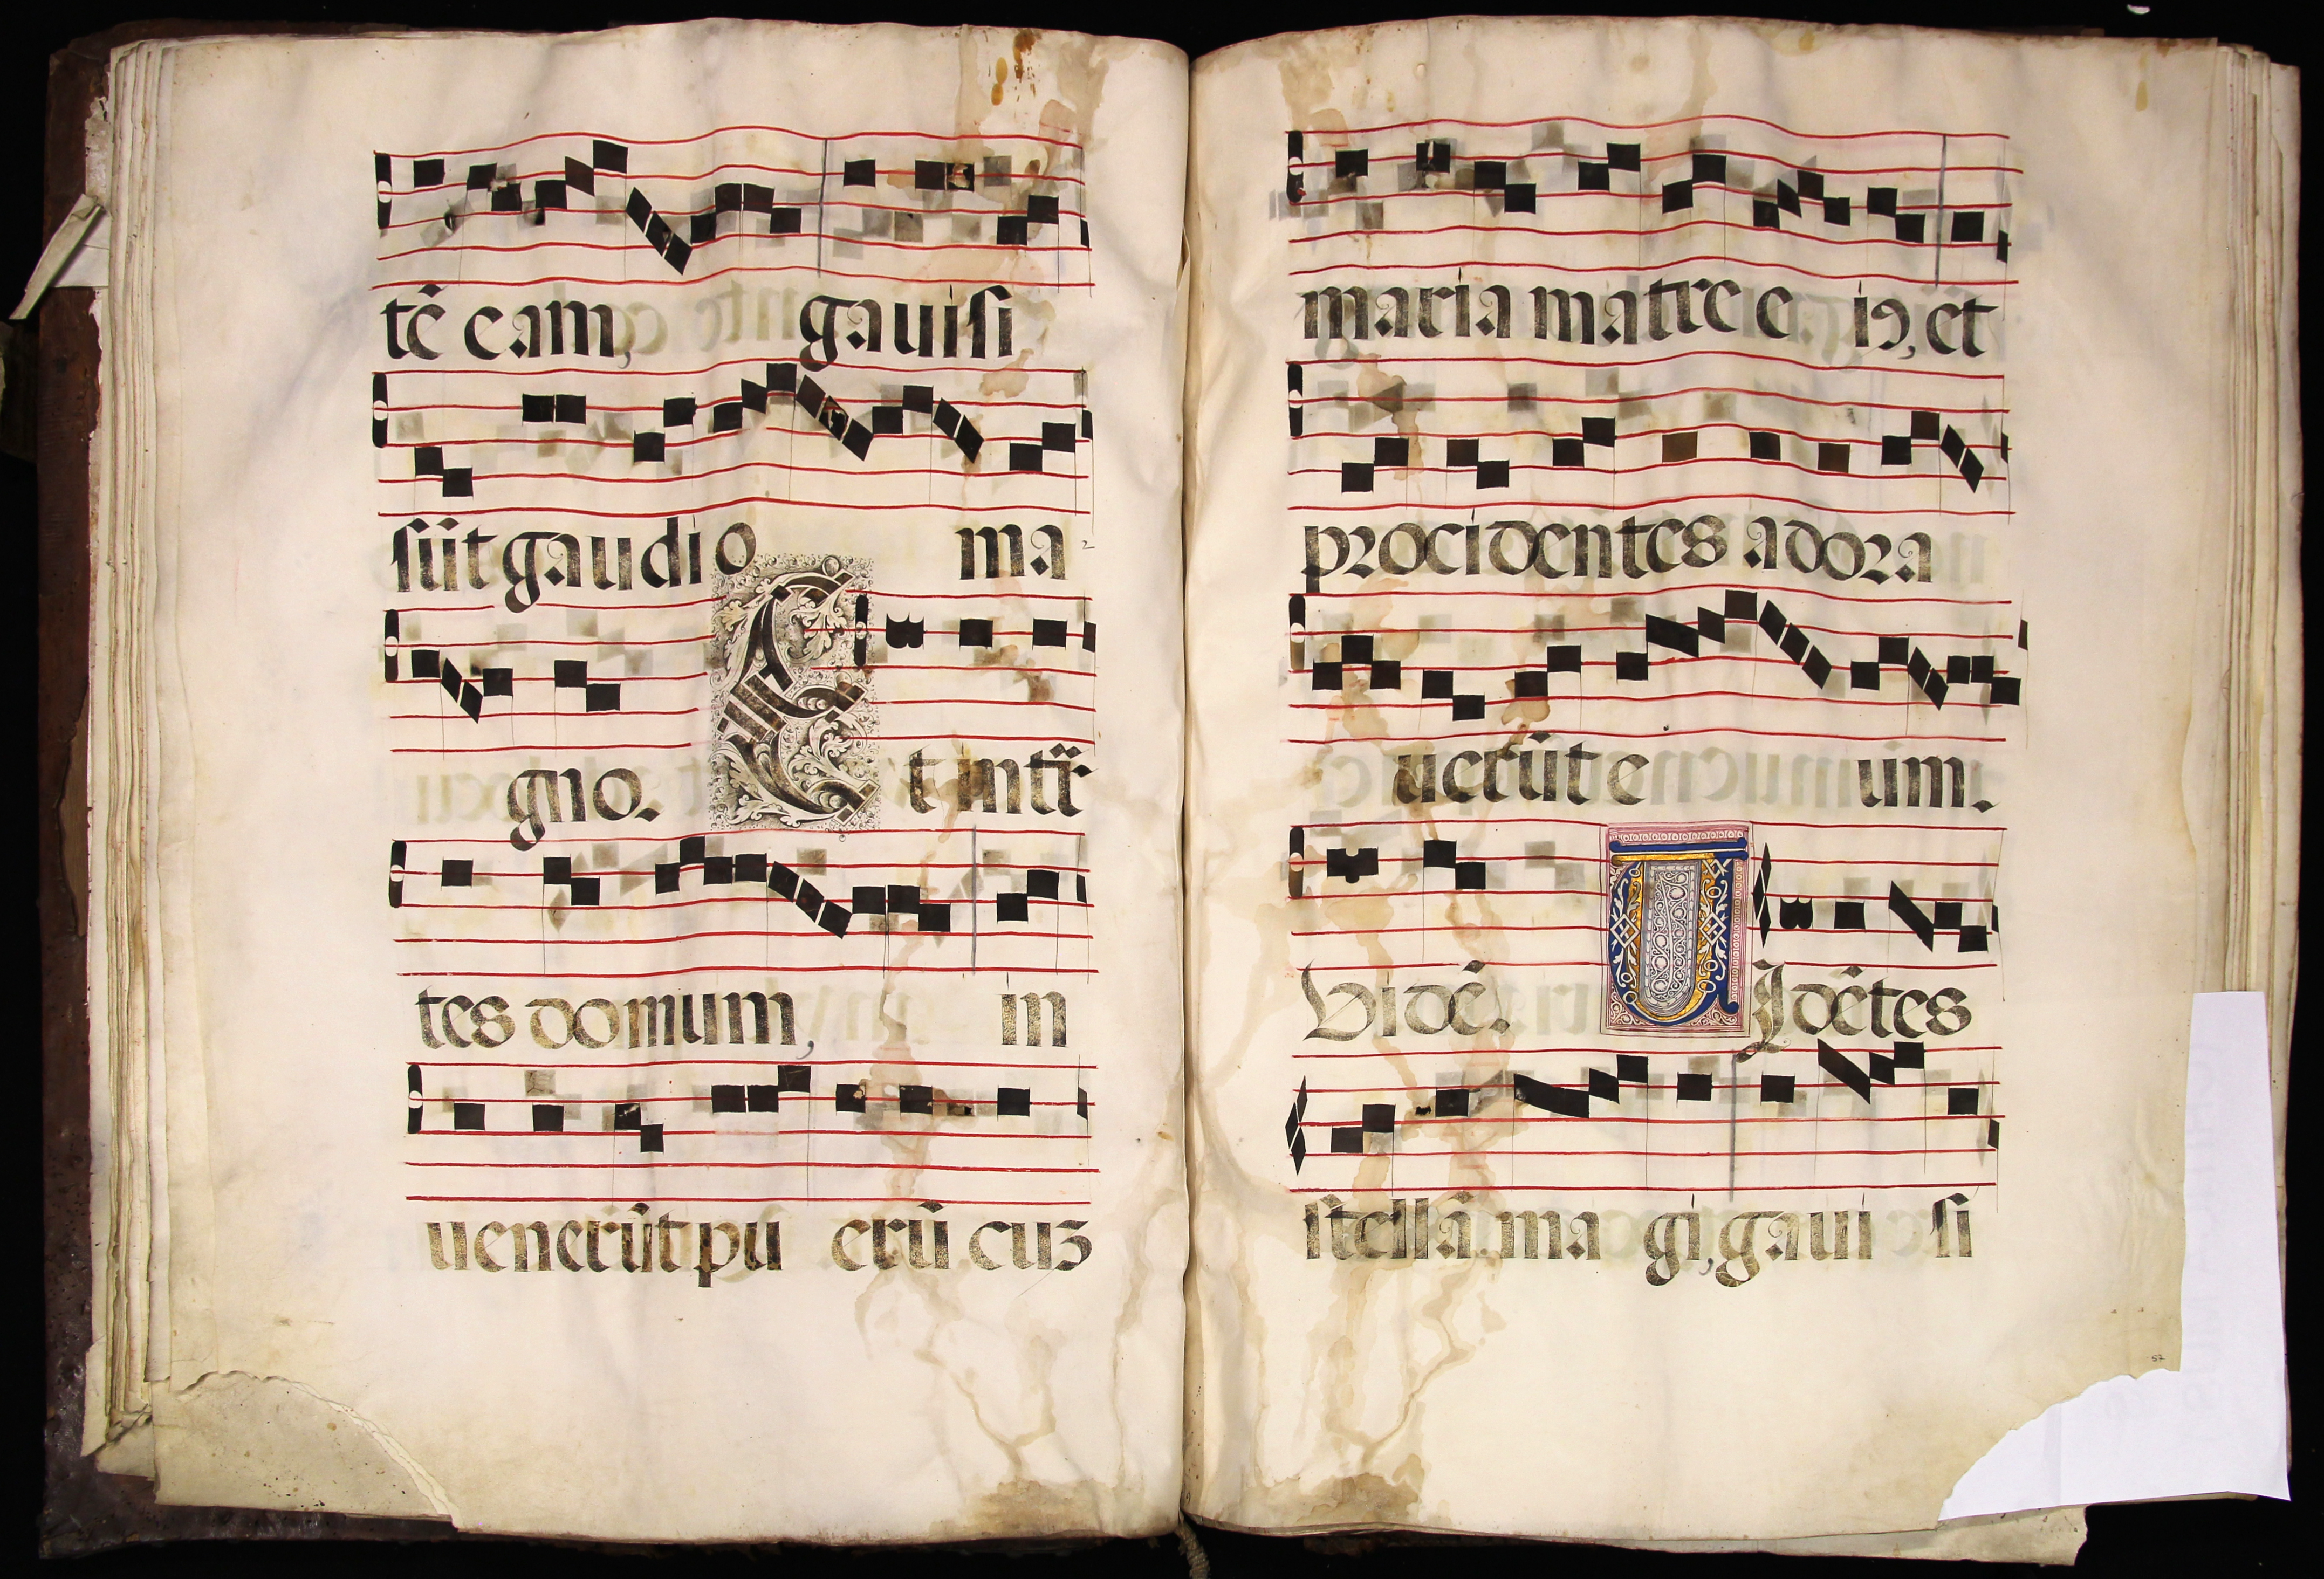 tē eam, gauisi
sūt gaudio ma
gno. Et intrā
tes domum, in
uenerūt pu erū cuz
maria matre e iꝰ, et
procidentes adora
uerūt e um.
Vidē. VIdētes
stellā ma gi, gaui si
57